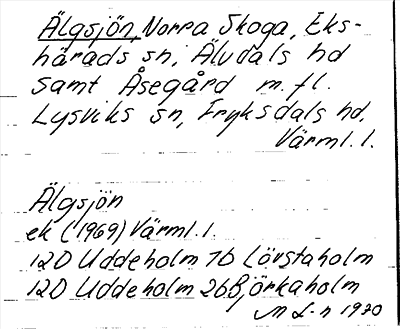 Älgsjön, Norra Skoga, Eks-
härads sn, Älvdals hd
samt Åsegård m.fl.
Lysviks sn, Fryksdals hd.
Värml. l.
Älgsjön
ek (1969) Värml. l.
12D Uddeholm 7b Lövstaholm
12D Uddeholm 26B Björkaholm
M L-n 1970